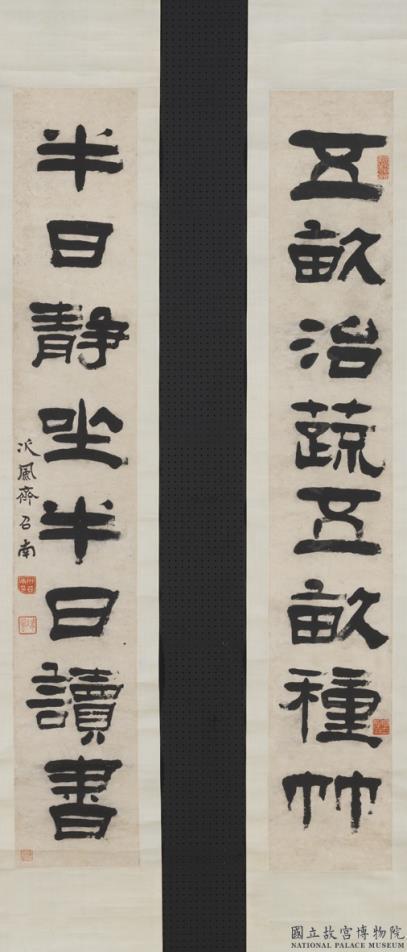 五畝治蔬五畝種竹
半日靜坐半日讀書
次風齊召南
國立故宮博物院
NATIONAL PALACE MUSEUM